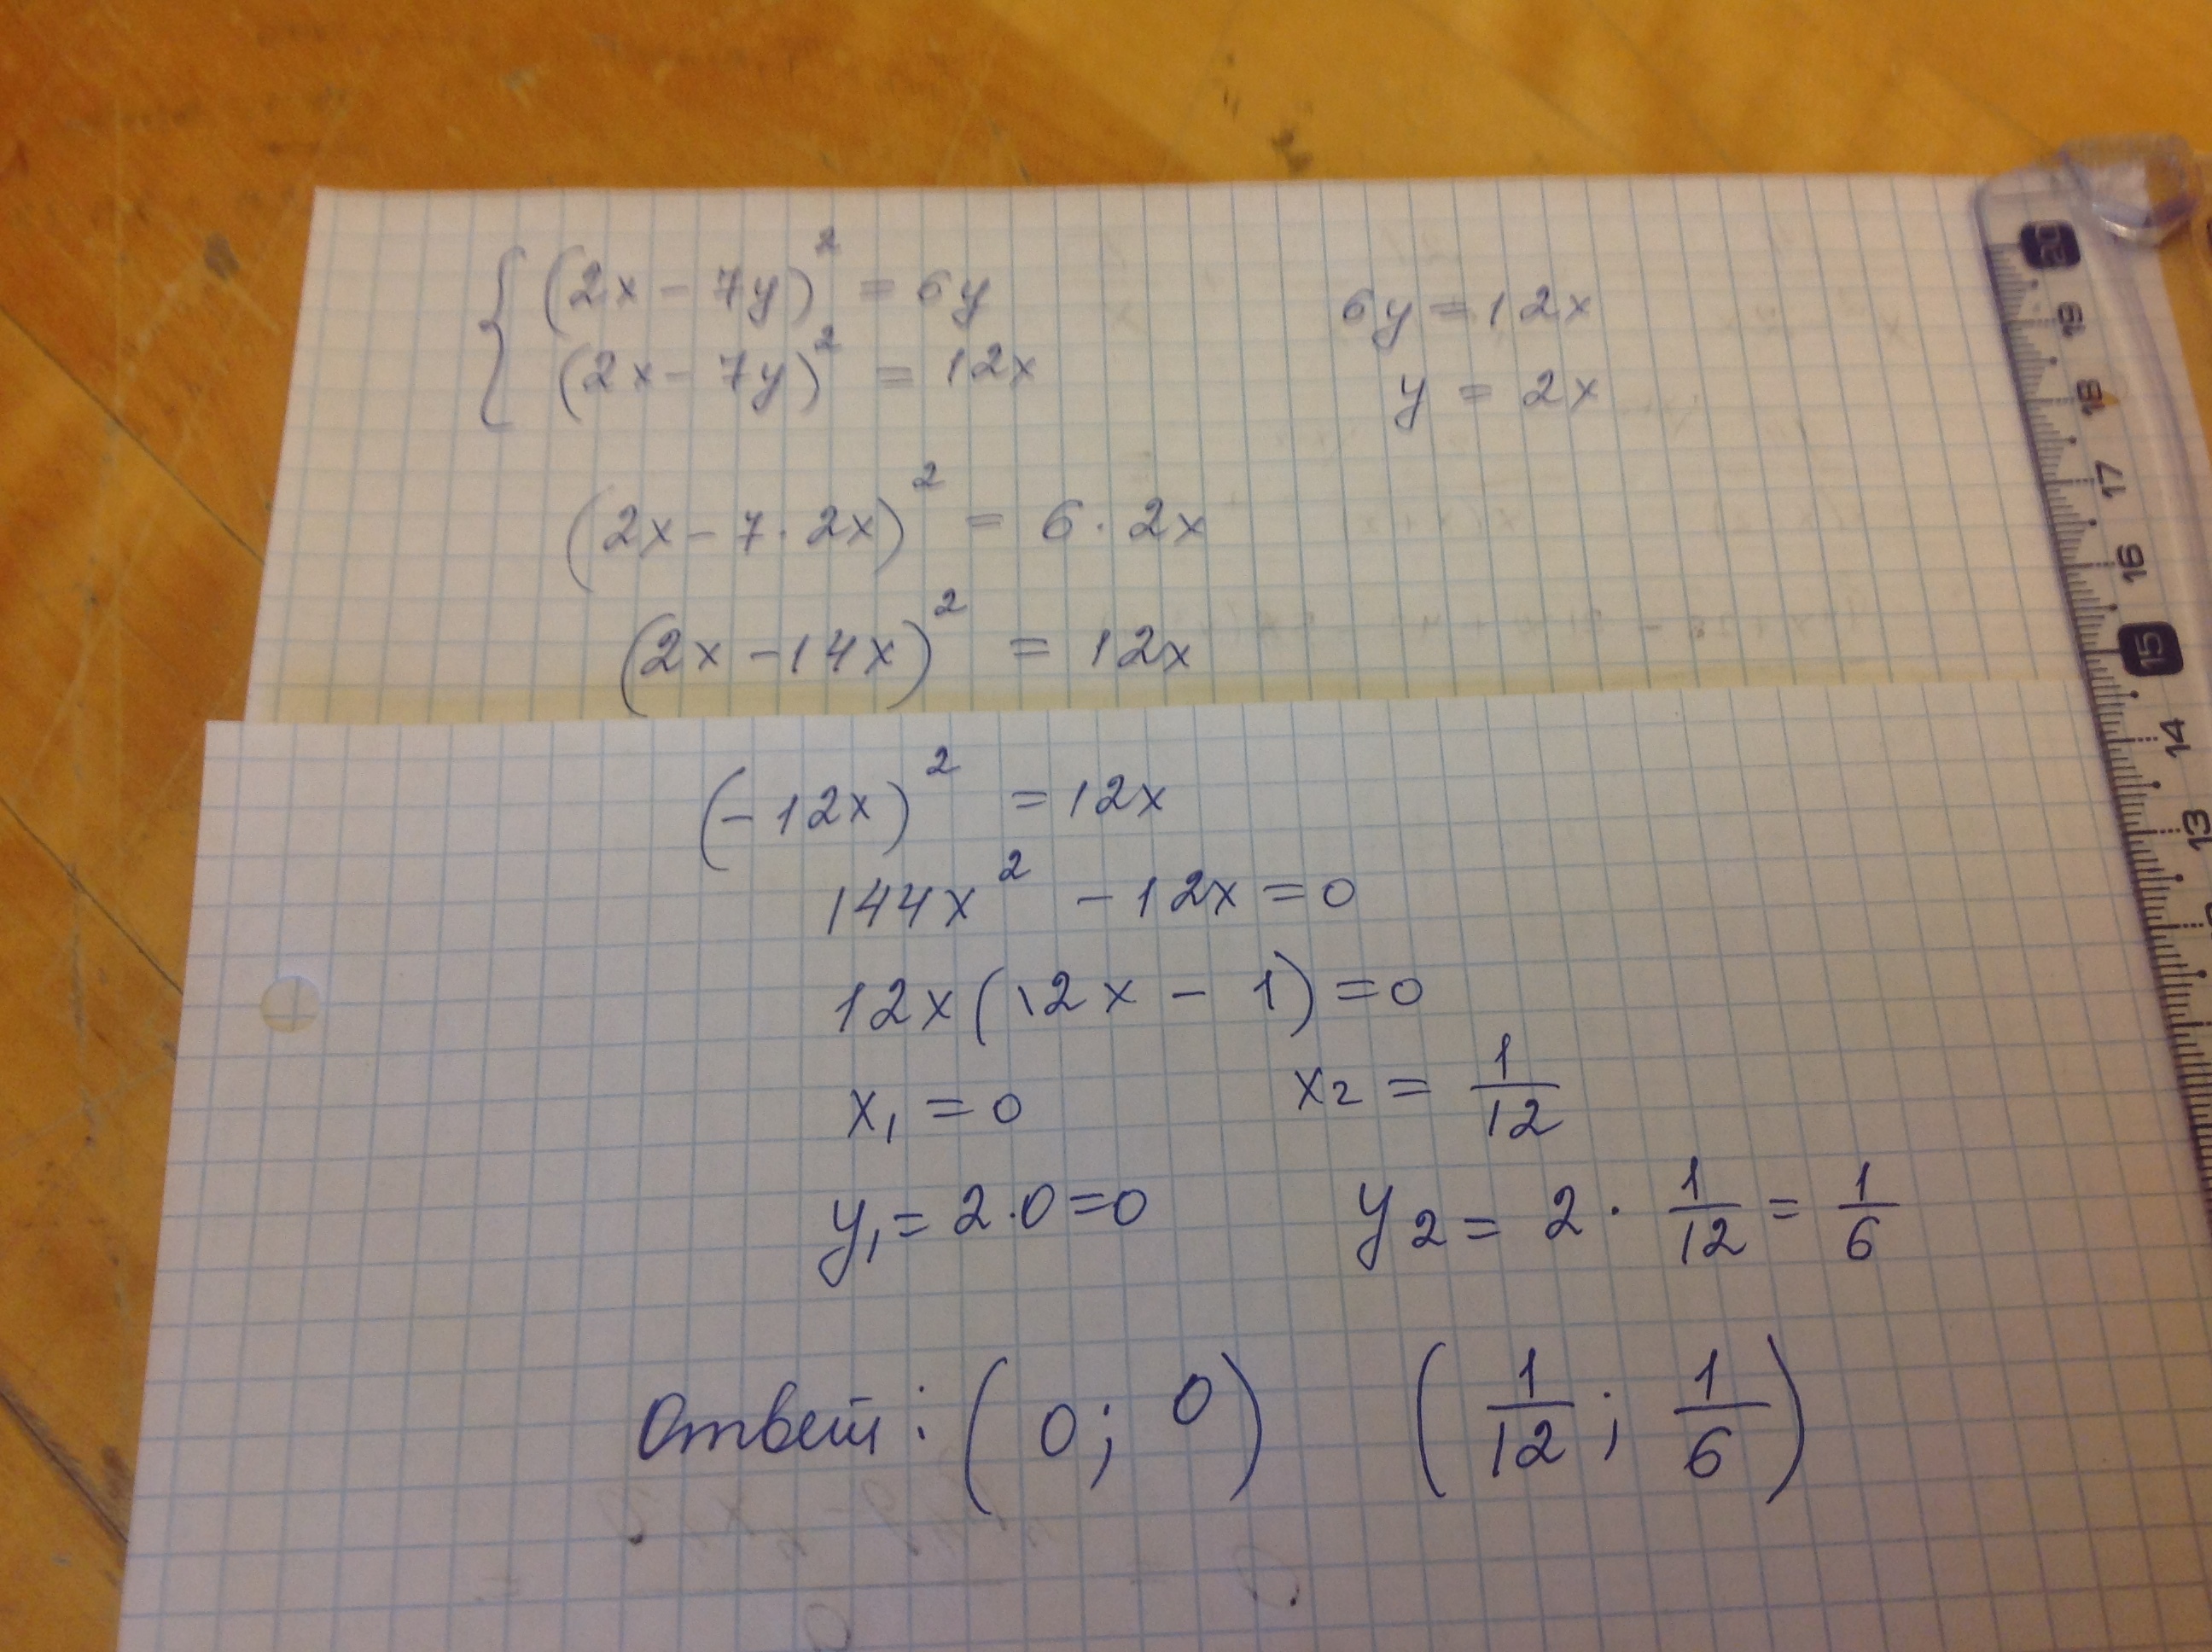 (2x - 7y)² = 6y
(2x - 7y)² = 12x
6y = 12x
y = 2x
(2x - 7 · 2x)² = 6 · 2x
(2x - 14x)² = 12x
(-12x)² = 12x
144x² - 12x = 0
12x(12x - 1) = 0
x₁ = 0 x₂ = 1/12
y₁ = 2·0 = 0 y₂ = 2 · 1/12 = 1/6
Ответ: (0; 0) (1/12; 1/6)
20
19
18
17
16
15
14
13